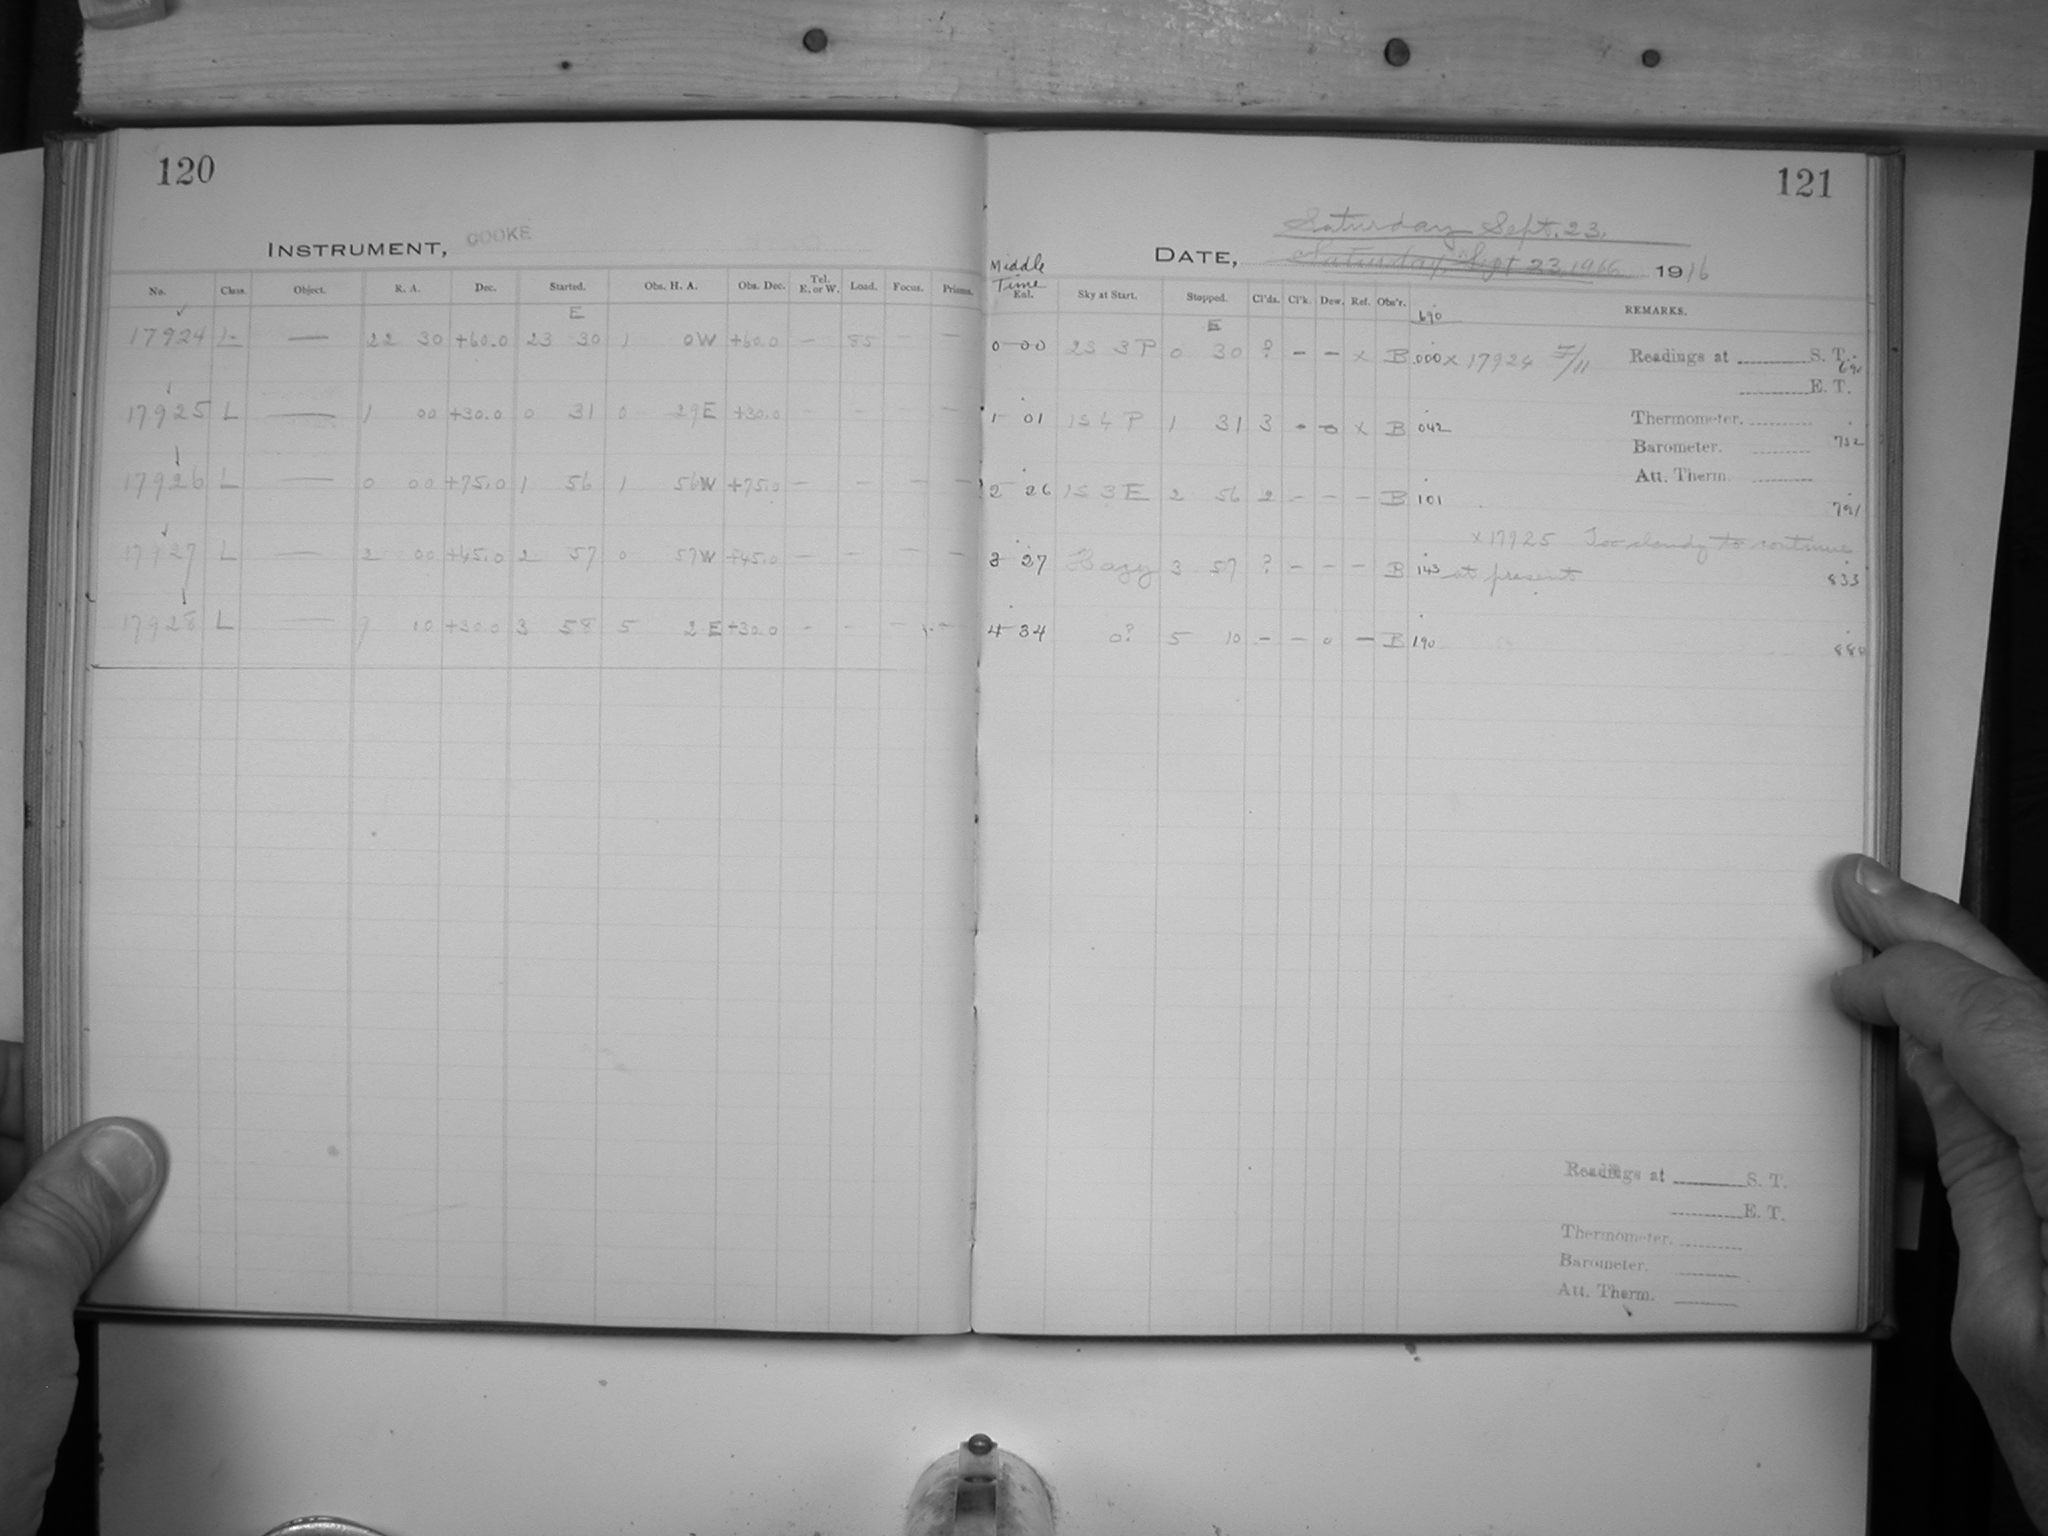 120
INSTRUMENT, COOKE
No. Class. Object. R. A. Dec. Started. Obs. H. A. Obs. Dec. Tel. E. or W. Load. Focus. Prisms.
E
17924 L — 22 30 +60.0 23 30 1 0W +60.0 — 85 — —
17925 L — 1 00 +30.0 0 31 0 29E +30.0 — — —
17926 L — 0 00 +75.0 1 56 1 56W +75.0 — — — —
17927 L — 2 00 +45.0 2 57 0 57W +45.0 — — — —
17928 L — 9 10 +30.0 3 58 5 2E +30.0 — — — —
121
Saturday Sept. 23.
DATE, Saturday, Sept 23, 1916 1916
Middle Time
Exl. Sky at Start. Stopped. Cl'ds. Cl'k. Dew. Ref. Obs'r. REMARKS.
E 690
0 00 2S 3P 0 30 ? — — x B .000 x 17924 Readings at S. T. 690
E. T.
1 01 1S 4P 1 31 3 - o x B 042 Thermometer. 732
Barometer.
Att. Therm.
2 26 1S 3E 2 56 2 — — — B 101 791
x 17925 Too cloudy to continue
3 27 Hazy 3 57 ? — — — B 143 at present 833
4 34 0? 5 10 — — o — B 190 880
Readings at S. T.
E. T.
Thermometer.
Barometer.
Att. Therm.